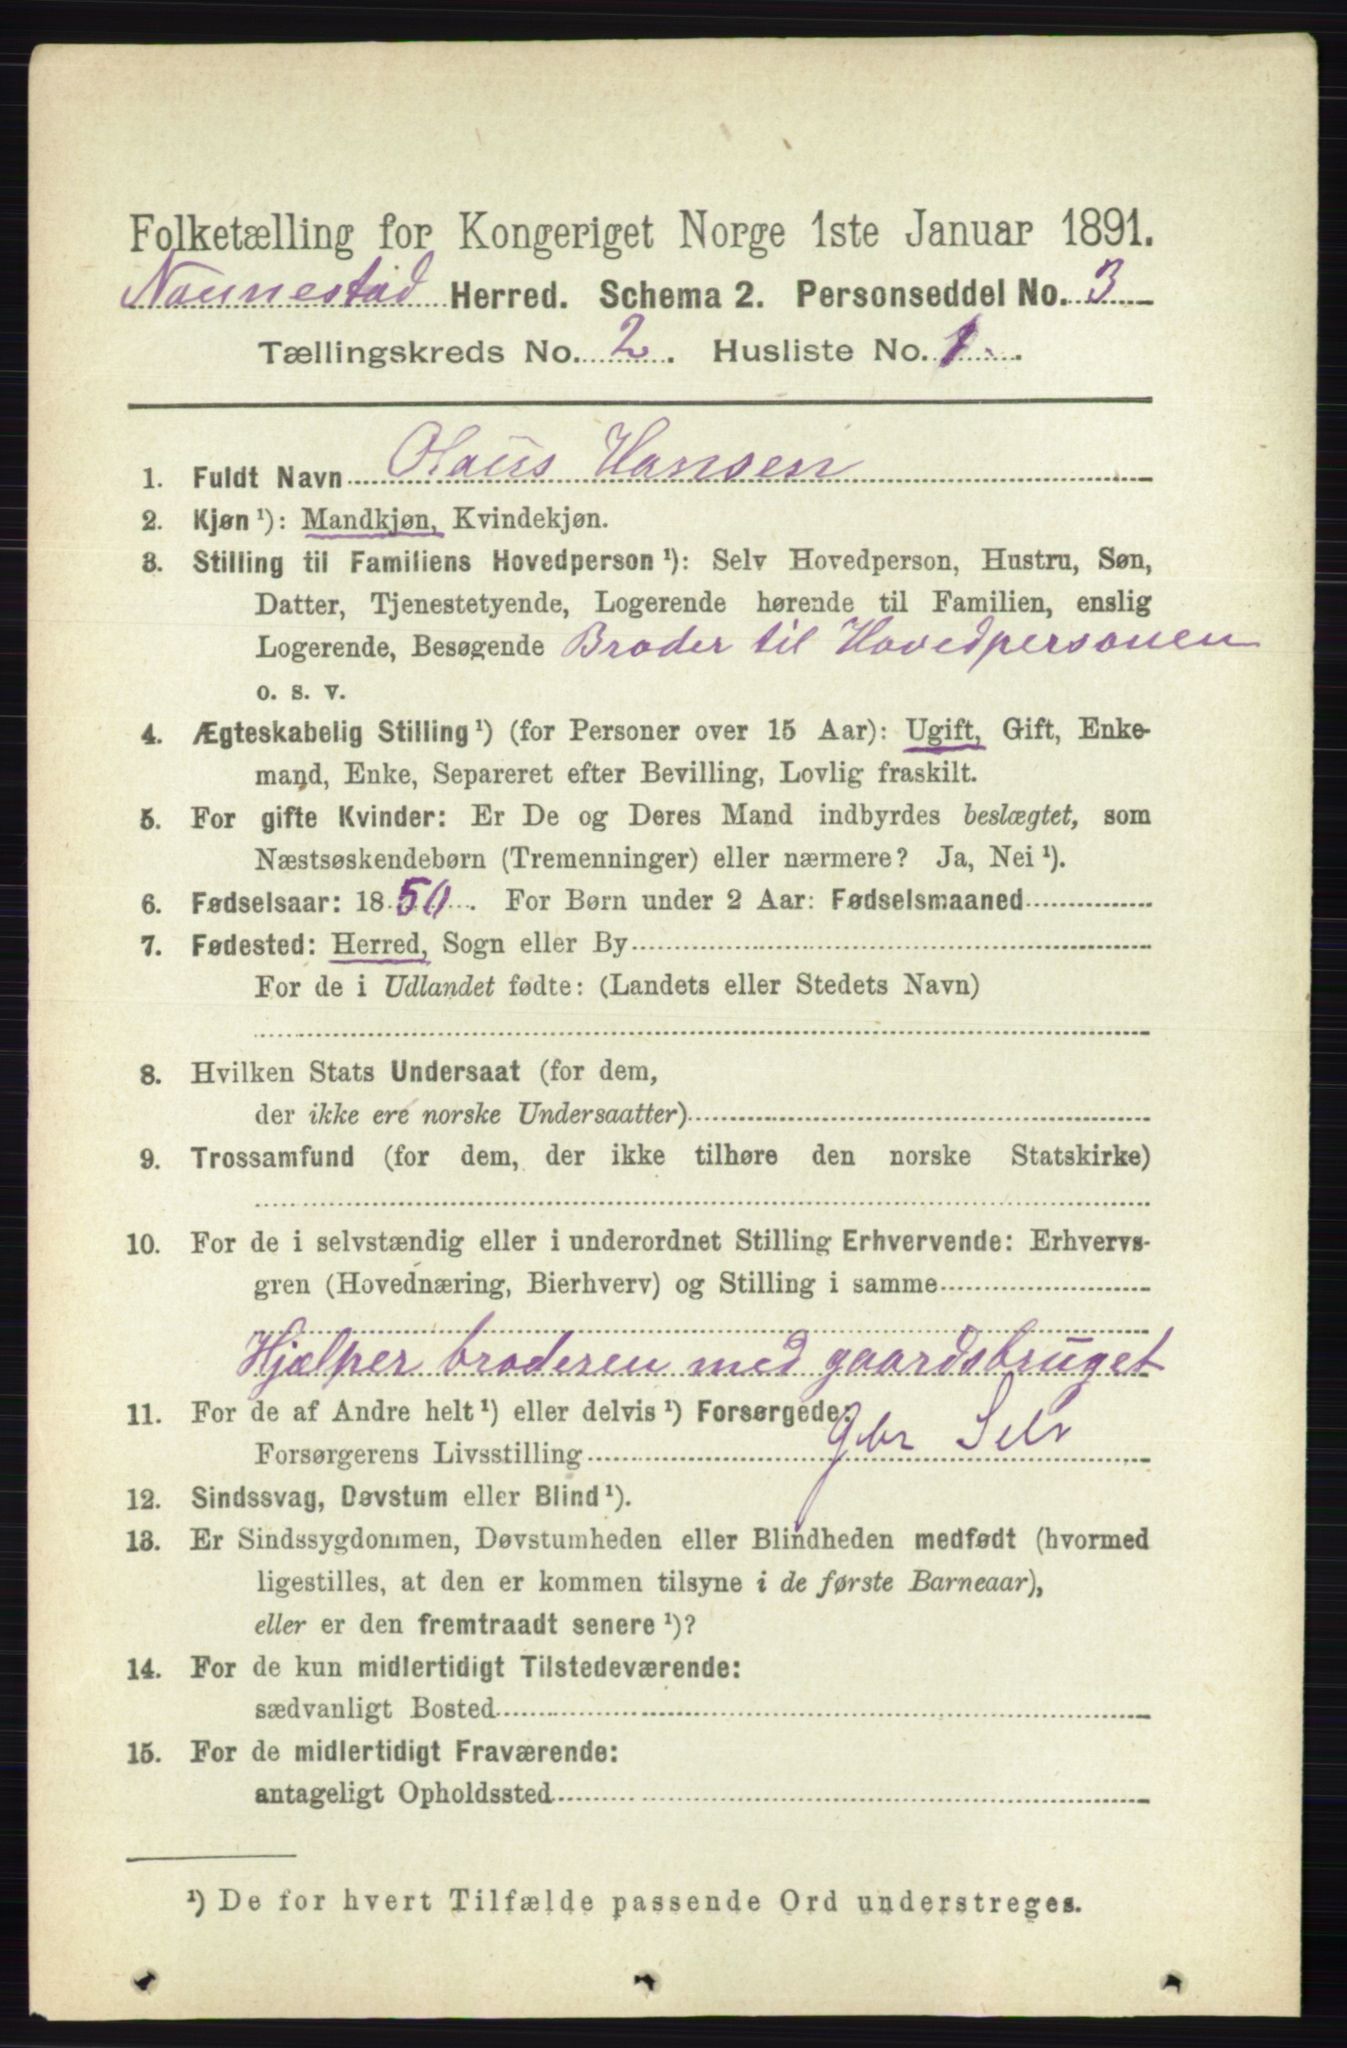 Folketælling for Kongeriget Norge 1ste Januar 1891.
Nannestad Herred. Schema 2. Personseddel No. 3
Tællingskreds No. 2. Husliste No. 1.
1. Fuldt Navn Olaus Hansen
2. Kjøn ¹): Mandkjøn, Kvindekjøn.
3. Stilling til Familiens Hovedperson ¹): Selv Hovedperson, Hustru, Søn,
Datter, Tjenestetyende, Logerende hørende til Familien, enslig
Logerende, Besøgende Broder til Hovedpersonen
o. s. v.
4. Ægteskabelig Stilling ¹) (for Personer over 15 Aar): Ugift, Gift, Enke-
mand, Enke, Separeret efter Bevilling, Lovlig fraskilt.
5. For gifte Kvinder: Er De og Deres Mand indbyrdes beslægtet, som
Næstsøskendebørn (Tremenninger) eller nærmere? Ja, Nei ¹).
6. Fødselsaar: 1850. For Børn under 2 Aar: Fødselsmaaned
7. Fødested: Herred, Sogn eller By
For de i Udlandet fødte: (Landets eller Stedets Navn)
8. Hvilken Stats Undersaat (for dem,
der ikke ere norske Undersaatter)
9. Trossamfund (for dem, der ikke tilhøre den norske Statskirke)
10. For de i selvstændig eller i underordnet Stilling Erhvervende: Erhvervs-
gren (Hovednæring, Bierhverv) og Stilling i samme
Hjælper broderen med gaardsbruget
11. For de af Andre helt ¹) eller delvis ¹) Forsørgede:
Forsørgerens Livsstilling Gbr Selv
12. Sindssvag, Døvstum eller Blind ¹).
13. Er Sindssygdommen, Døvstumheden eller Blindheden medfødt (hvormed
ligestilles, at den er kommen tilsyne i de første Barneaar),
eller er den fremtraadt senere ¹)?
14. For de kun midlertidigt Tilstedeværende:
sædvanligt Bosted
15. For de midlertidigt Fraværende:
antageligt Opholdssted
¹) De for hvert Tilfælde passende Ord understreges.